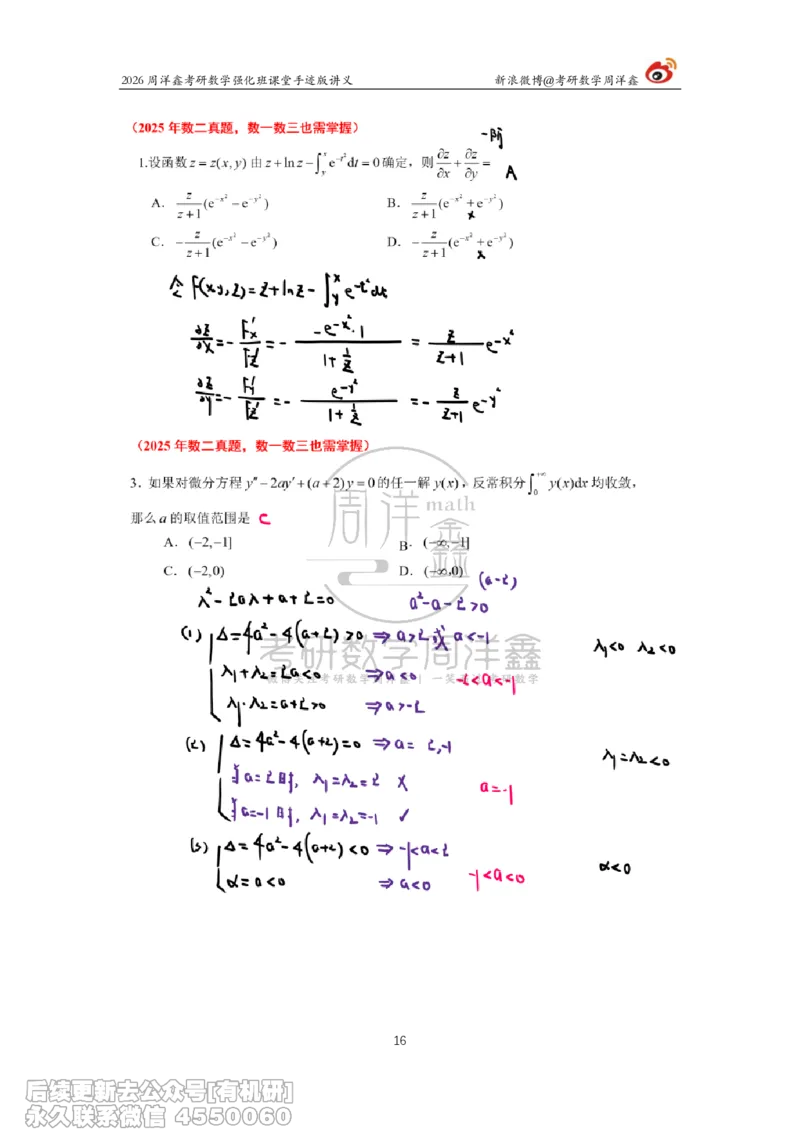 2026 周洋鑫考研数学强化班课堂手迹版讲义 新浪微博@考研数学周洋鑫
（2025 年数二真题，数一数三也需掌握）
一阶
1.设函数 z = z(x, y) 由 z + ln z − ∫_y^x e^{-t²} dt = 0 确定，则 ∂z/∂x + ∂z/∂y = A
A. z/(z+1) (e^{-x²} − e^{-y²}) B. z/(z+1) (e^{-x²} + e^{-y²}) ×
C. − z/(z+1) (e^{-x²} − e^{-y²}) D. − z/(z+1) (e^{-x²} + e^{-y²}) ×
令 F(x,y,z)=z+lnz−∫_y^x e^{-t²}dt
∂z/∂x = − F'x/F'z = − (−e^{-x²}·1)/(1+1/z) = z/(z+1) e^{-x²}
∂z/∂y = − F'y/F'z = − e^{-y²}/(1+1/z) = − z/(z+1) e^{-y²}
（2025 年数二真题，数一数三也需掌握）
3. 如果对微分方程 y″ − 2ay′ + (a + 2)y = 0 的任一解 y(x)，反常积分 ∫_0^{+∞} y(x)dx 均收敛，
那么 a 的取值范围是 C
A. (−2,−1] B. (−∞,−1]
C. (−2,0) D. (−∞,0)
λ²−2aλ+a+2=0 a²−a−2>0 (a-2)
(1) Δ=4a²−4(a+2)>0 ⇒ a>2 或 a<−1 λ₁<0 λ₂<0
λ₁+λ₂=2a<0 ⇒ a<0 −2<a<−1
λ₁·λ₂=a+2>0 ⇒ a>−2
(2) Δ=4a²−4(a+2)=0 ⇒ a= 2,−1 λ₁=λ₂<0
当a=2时, λ₁=λ₂=2 × a=−1
当a=−1时, λ₁=λ₂=−1 ✓
(3) Δ=4a²−4(a+2)<0 ⇒ −1<a<2 α<0
α=a<0 ⇒ a<0 −1<a<0
周洋鑫 math
考研数学周洋鑫
16
后续更新去公众号[有机研]
永久联系微信 4550060